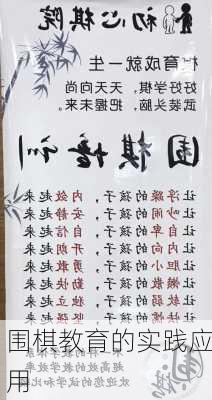 初心棋院
棋育成就一生
好好学棋,天天向尚
武装头脑,把握未来
围棋培训
让浮躁的孩子,内敛起来
让吵闹的孩子,安静起来
让自卑的孩子,自信起来
让内向的孩子,开朗起来
让胆小的孩子,勇敢起来
让懒散的孩子,勤快起来
让软弱的孩子,独立起来
围棋教育的实践应
用